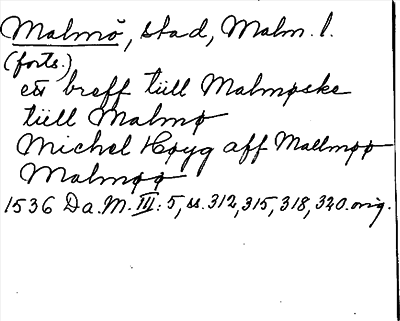 Malmö, stad, Malm. l.
(forts.)
ett breff tüll Malmøske
tüll Malmø
Michel Høyg aff Mallmøø
Malmøø
1536 Da. M. III: 5, ss. 312, 315, 318, 320. orig.